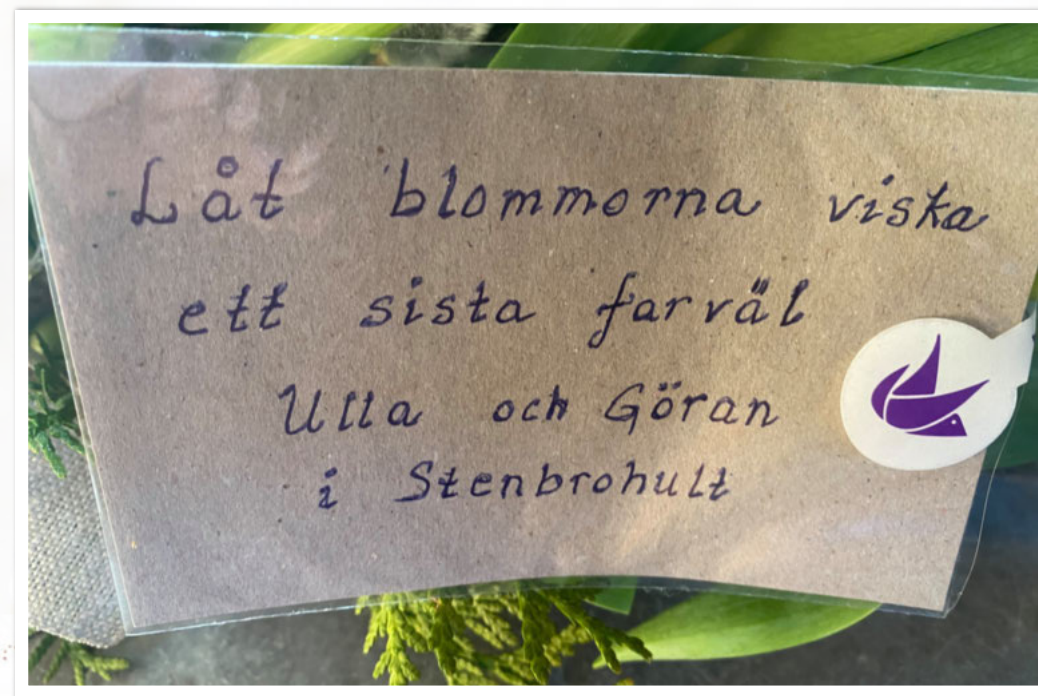 Låt blommorna viska
ett sista farväl
Ulla och Göran
i Stenbrohult